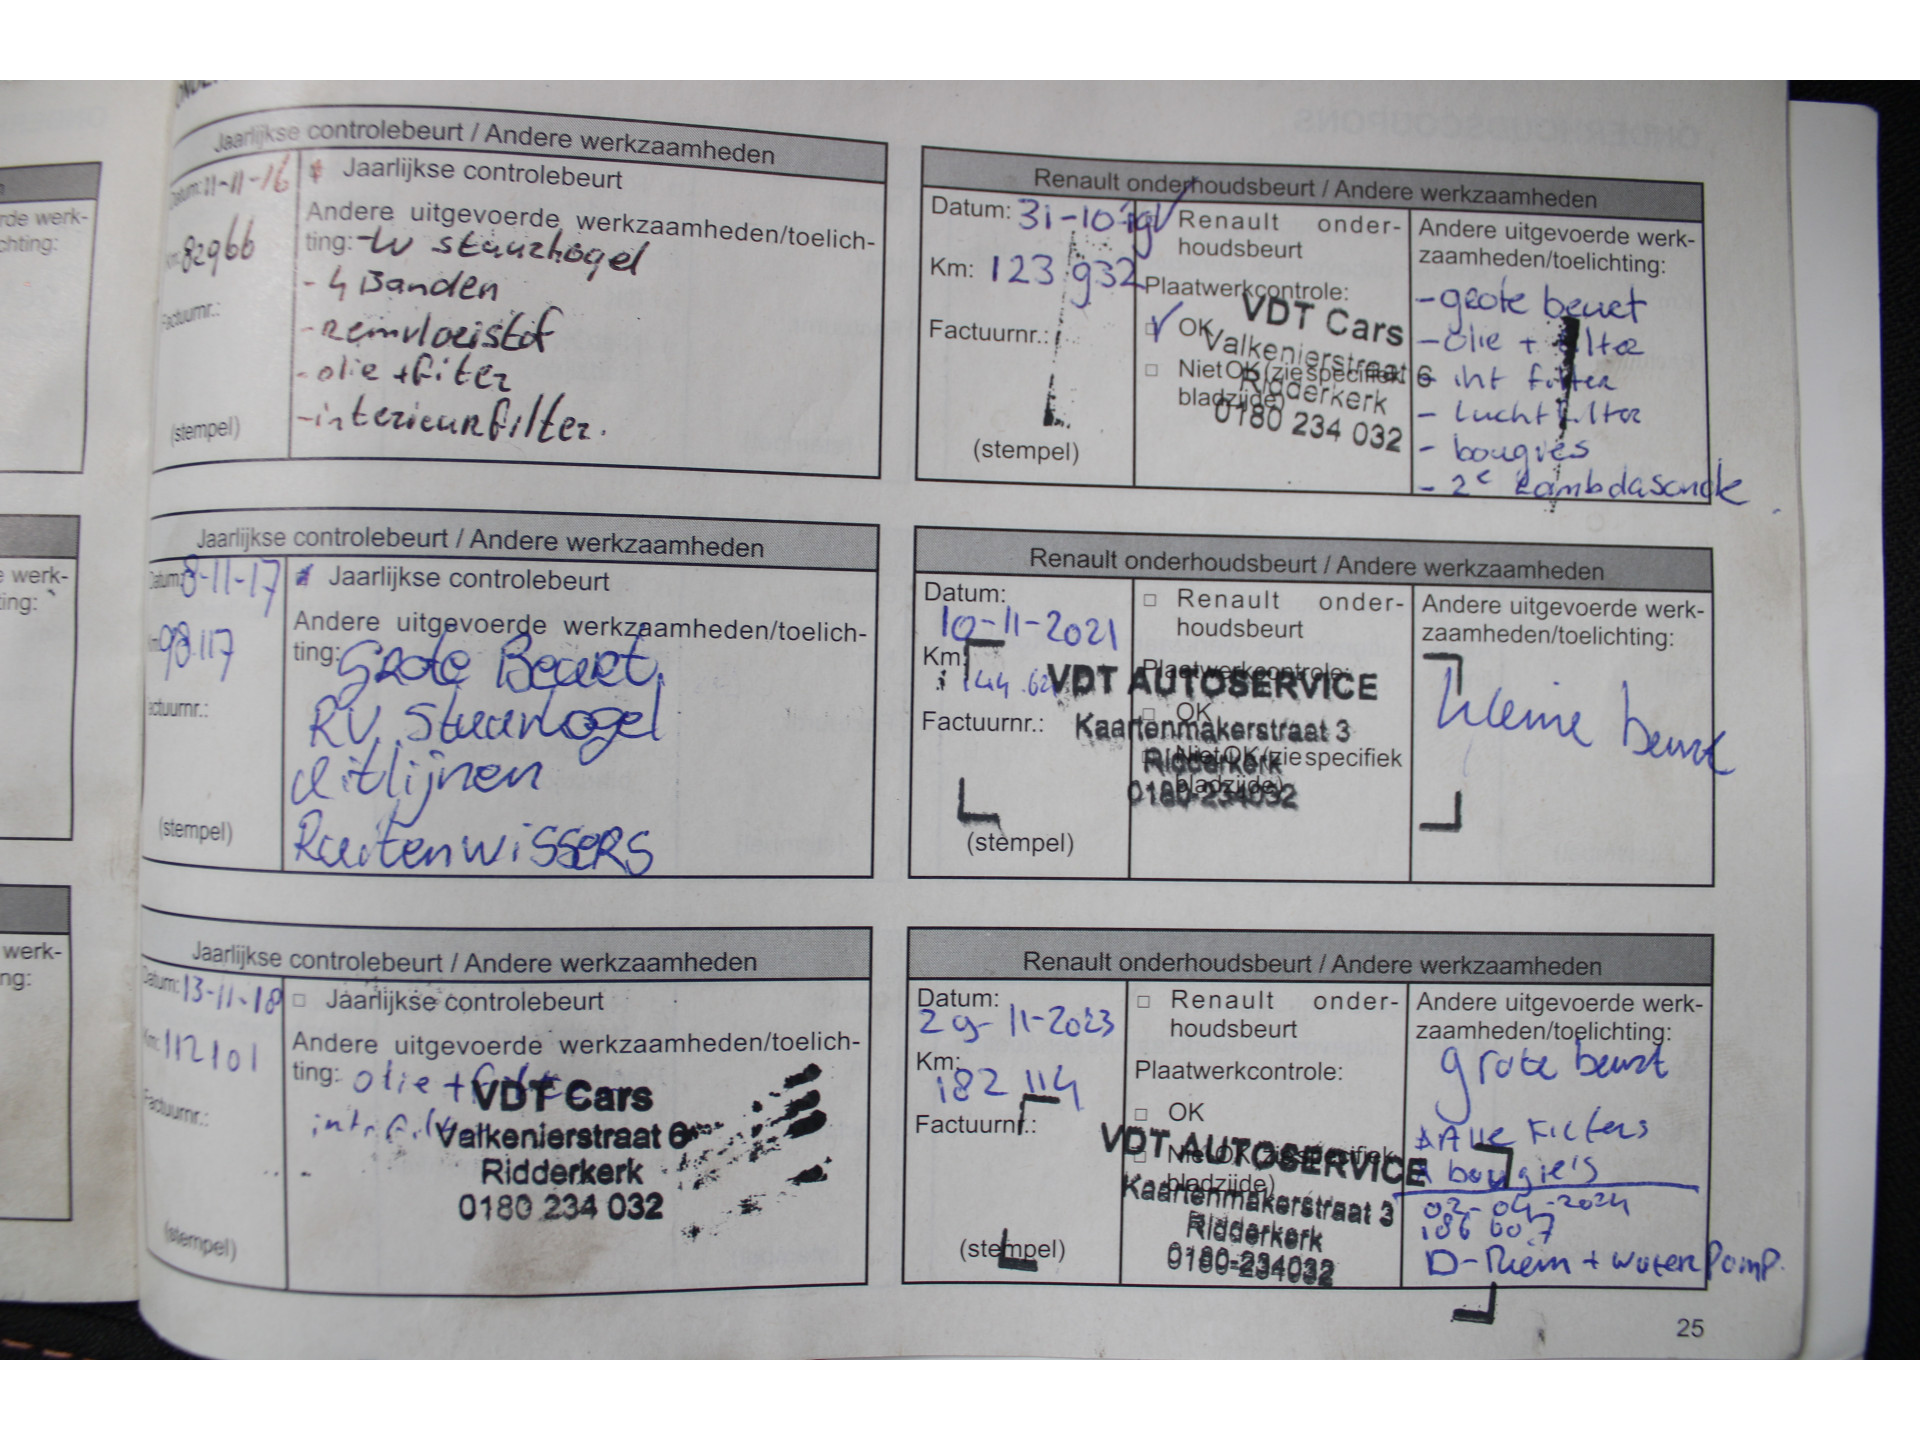 rde werk-
chting:
e werk-
ing:
werk-
ng:
Jaarlijkse controlebeurt / Andere werkzaamheden
Datum: 11-11-16
Jaarlijkse controlebeurt
Andere uitgevoerde werkzaamheden/toelich-
ting:
Km: 82966
- 4 Banden
- remvloeistof
- olie + filter
- interieurfilter.
Factuurnr.:
(stempel)
Jaarlijkse controlebeurt / Andere werkzaamheden
Datum: 8-11-17
Jaarlijkse controlebeurt
Andere uitgevoerde werkzaamheden/toelich-
ting: Grote Beurt,
Km: 98.117
RV. Stuurkogel
uitlijnen
Ruitenwissers
Factuurnr.:
(stempel)
Jaarlijkse controlebeurt / Andere werkzaamheden
Datum: 13-11-18
Jaarlijkse controlebeurt
Andere uitgevoerde werkzaamheden/toelich-
ting: olie +
Km: 112101
Factuurnr.:
VDT Cars
Valkenierstraat 6
Ridderkerk
0180 234 032
(stempel)
Renault onderhoudsbeurt / Andere werkzaamheden
Datum: 31-10-19
Km: 123.932
Factuurnr.:
(stempel)
Renault onder-
houdsbeurt
Plaatwerkcontrole:
OK
Niet OK (zie specifiek
bladzijde)
VDT Cars
Valkenierstraat 6
Ridderkerk
0180 234 032
Andere uitgevoerde werk-
zaamheden/toelichting:
- grote beurt
- olie + filter
- int filter
- luchtfilter
- bougies
- 2e Lambdasonde
Renault onderhoudsbeurt / Andere werkzaamheden
Datum:
10-11-2021
Km:
Factuurnr.:
(stempel)
Renault onder-
houdsbeurt
Plaatwerkcontrole:
OK
Niet OK (zie specifiek
bladzijde)
VDT AUTOSERVICE
Kaartenmakerstraat 3
Ridderkerk
0180-234032
Andere uitgevoerde werk-
zaamheden/toelichting:
kleine beurt
Renault onderhoudsbeurt / Andere werkzaamheden
Datum:
29-11-2023
Km:
182 114
Factuurnr.:
(stempel)
Renault onder-
houdsbeurt
Plaatwerkcontrole:
OK
Niet OK (zie specifiek
bladzijde)
VDT AUTOSERVICE
Kaartenmakerstraat 3
Ridderkerk
0180-234032
Andere uitgevoerde werk-
zaamheden/toelichting:
grote beurt
Alle Filters
bougie's
02-04-2024
186 607
D-Riem + waterpomp.
25